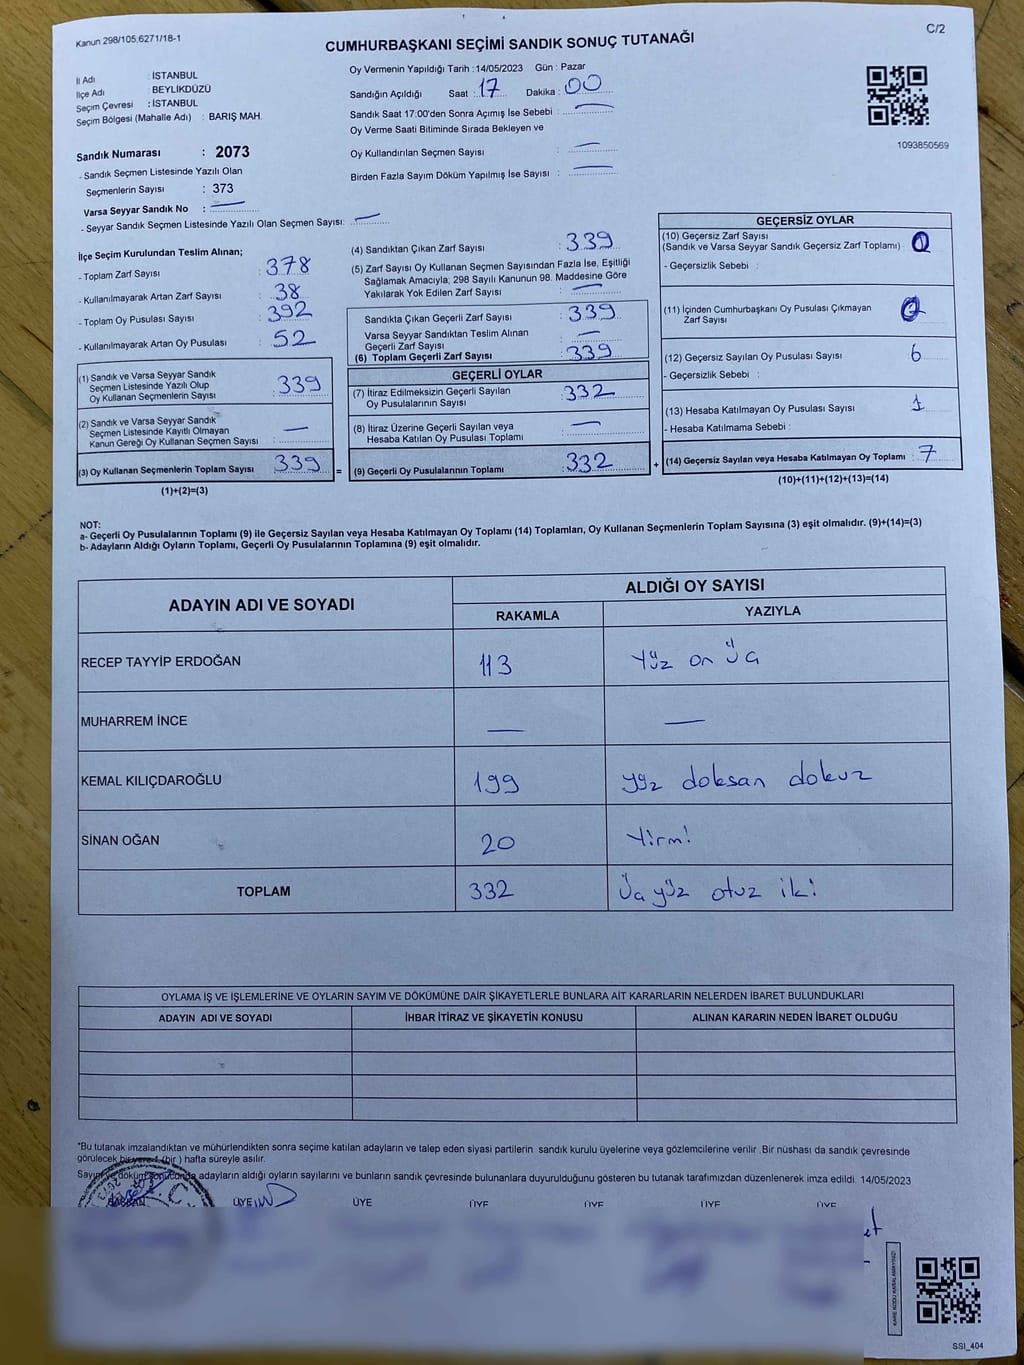 Kanun 298/105;6271/18-1
C/2
CUMHURBAŞKANI SEÇİMİ SANDIK SONUÇ TUTANAĞI
İl Adı : İSTANBUL
İlçe Adı : BEYLİKDÜZÜ
Seçim Çevresi : İSTANBUL
Seçim Bölgesi (Mahalle Adı) : BARIŞ MAH.
Sandık Numarası : 2073
- Sandık Seçmen Listesinde Yazılı Olan
Seçmenlerin Sayısı : 373
Varsa Seyyar Sandık No : —
- Seyyar Sandık Seçmen Listesinde Yazılı Olan Seçmen Sayısı: —
Oy Vermenin Yapıldığı Tarih : 14/05/2023 Gün : Pazar
Sandığın Açıldığı Saat : 17 Dakika : 00
Sandık Saat 17:00'den Sonra Açımış İse Sebebi : —
Oy Verme Saati Bitiminde Sırada Bekleyen ve
Oy Kullandırılan Seçmen Sayısı : —
Birden Fazla Sayım Döküm Yapılmış İse Sayısı : —
1093850569
İlçe Seçim Kurulundan Teslim Alınan;
- Toplam Zarf Sayısı : 378
- Kullanılmayarak Artan Zarf Sayısı : 38
- Toplam Oy Pusulası Sayısı : 392
- Kullanılmayarak Artan Oy Pusulası : 52
(1) Sandık ve Varsa Seyyar Sandık
Seçmen Listesinde Yazılı Olup
Oy Kullanan Seçmenlerin Sayısı : 339
(2) Sandık ve Varsa Seyyar Sandık
Seçmen Listesinde Kayıtlı Olmayan
Kanun Gereği Oy Kullanan Seçmen Sayısı : —
(3) Oy Kullanan Seçmenlerin Toplam Sayısı : 339
(1)+(2)=(3)
(4) Sandıktan Çıkan Zarf Sayısı : 339
(5) Zarf Sayısı Oy Kullanan Seçmen Sayısından Fazla İse, Eşitliği
Sağlamak Amacıyla; 298 Sayılı Kanunun 98. Maddesine Göre
Yakılarak Yok Edilen Zarf Sayısı : —
Sandıkta Çıkan Geçerli Zarf Sayısı : 339
Varsa Seyyar Sandıktan Teslim Alınan
Geçerli Zarf Sayısı : —
(6) Toplam Geçerli Zarf Sayısı : 339
GEÇERLİ OYLAR
(7) İtiraz Edilmeksizin Geçerli Sayılan
Oy Pusulalarının Sayısı : 332
(8) İtiraz Üzerine Geçerli Sayılan veya
Hesaba Katılan Oy Pusulası Toplamı : —
= (9) Geçerli Oy Pusulalarının Toplamı : 332
GEÇERSİZ OYLAR
(10) Geçersiz Zarf Sayısı
(Sandık ve Varsa Seyyar Sandık Geçersiz Zarf Toplamı) : 0
- Geçersizlik Sebebi :
(11) İçinden Cumhurbaşkanı Oy Pusulası Çıkmayan
Zarf Sayısı : 0
(12) Geçersiz Sayılan Oy Pusulası Sayısı : 6
- Geçersizlik Sebebi :
(13) Hesaba Katılmayan Oy Pusulası Sayısı : 1
- Hesaba Katılmama Sebebi :
+ (14) Geçersiz Sayılan veya Hesaba Katılmayan Oy Toplamı : 7
(10)+(11)+(12)+(13)=(14)
NOT:
a- Geçerli Oy Pusulalarının Toplamı (9) ile Geçersiz Sayılan veya Hesaba Katılmayan Oy Toplamı (14) Toplamları, Oy Kullanan Seçmenlerin Toplam Sayısına (3) eşit olmalıdır. (9)+(14)=(3)
b- Adayların Aldığı Oyların Toplamı, Geçerli Oy Pusulalarının Toplamına (9) eşit olmalıdır.
ADAYIN ADI VE SOYADI
ALDIĞI OY SAYISI
RAKAMLA YAZIYLA
RECEP TAYYİP ERDOĞAN 113 Yüz on üç
MUHARREM İNCE — —
KEMAL KILIÇDAROĞLU 199 yüz doksan dokuz
SİNAN OĞAN 20 Yirmi
TOPLAM 332 Üç yüz otuz iki
OYLAMA İŞ VE İŞLEMLERİNE VE OYLARIN SAYIM VE DÖKÜMÜNE DAİR ŞİKAYETLERLE BUNLARA AİT KARARLARIN NELERDEN İBARET BULUNDUKLARI
ADAYIN ADI VE SOYADI İHBAR İTİRAZ VE ŞİKAYETİN KONUSU ALINAN KARARIN NEDEN İBARET OLDUĞU
*Bu tutanak imzalandıktan ve mühürlendikten sonra seçime katılan adayların ve talep eden siyasi partilerin sandık kurulu üyelerine veya gözlemcilerine verilir. Bir nüshası da sandık çevresinde
görülecek bir yere 1 (bir) hafta süreyle asılır.
Sayım ve döküm sonucunda adayların aldığı oyların sayılarını ve bunların sandık çevresinde bulunanlara duyurulduğunu gösteren bu tutanak tarafımızdan düzenlenerek imza edildi. 14/05/2023
BAŞKAN ÜYE ÜYE ÜYE ÜYE ÜYE ÜYE
SSI_404